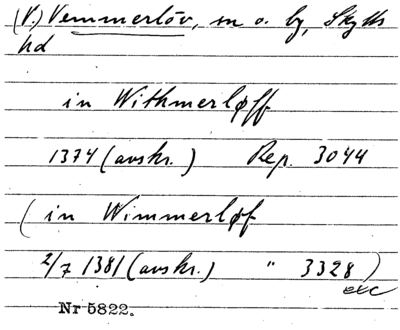 (V.) Vemmerlöv, sn o. by, Skytts
hd
in Withmerløff
1374 (avskr.) Rep. 3044
(in Wimmerløf
2/7 1381 (avskr.) " 3328)
etc
Nr 5822.